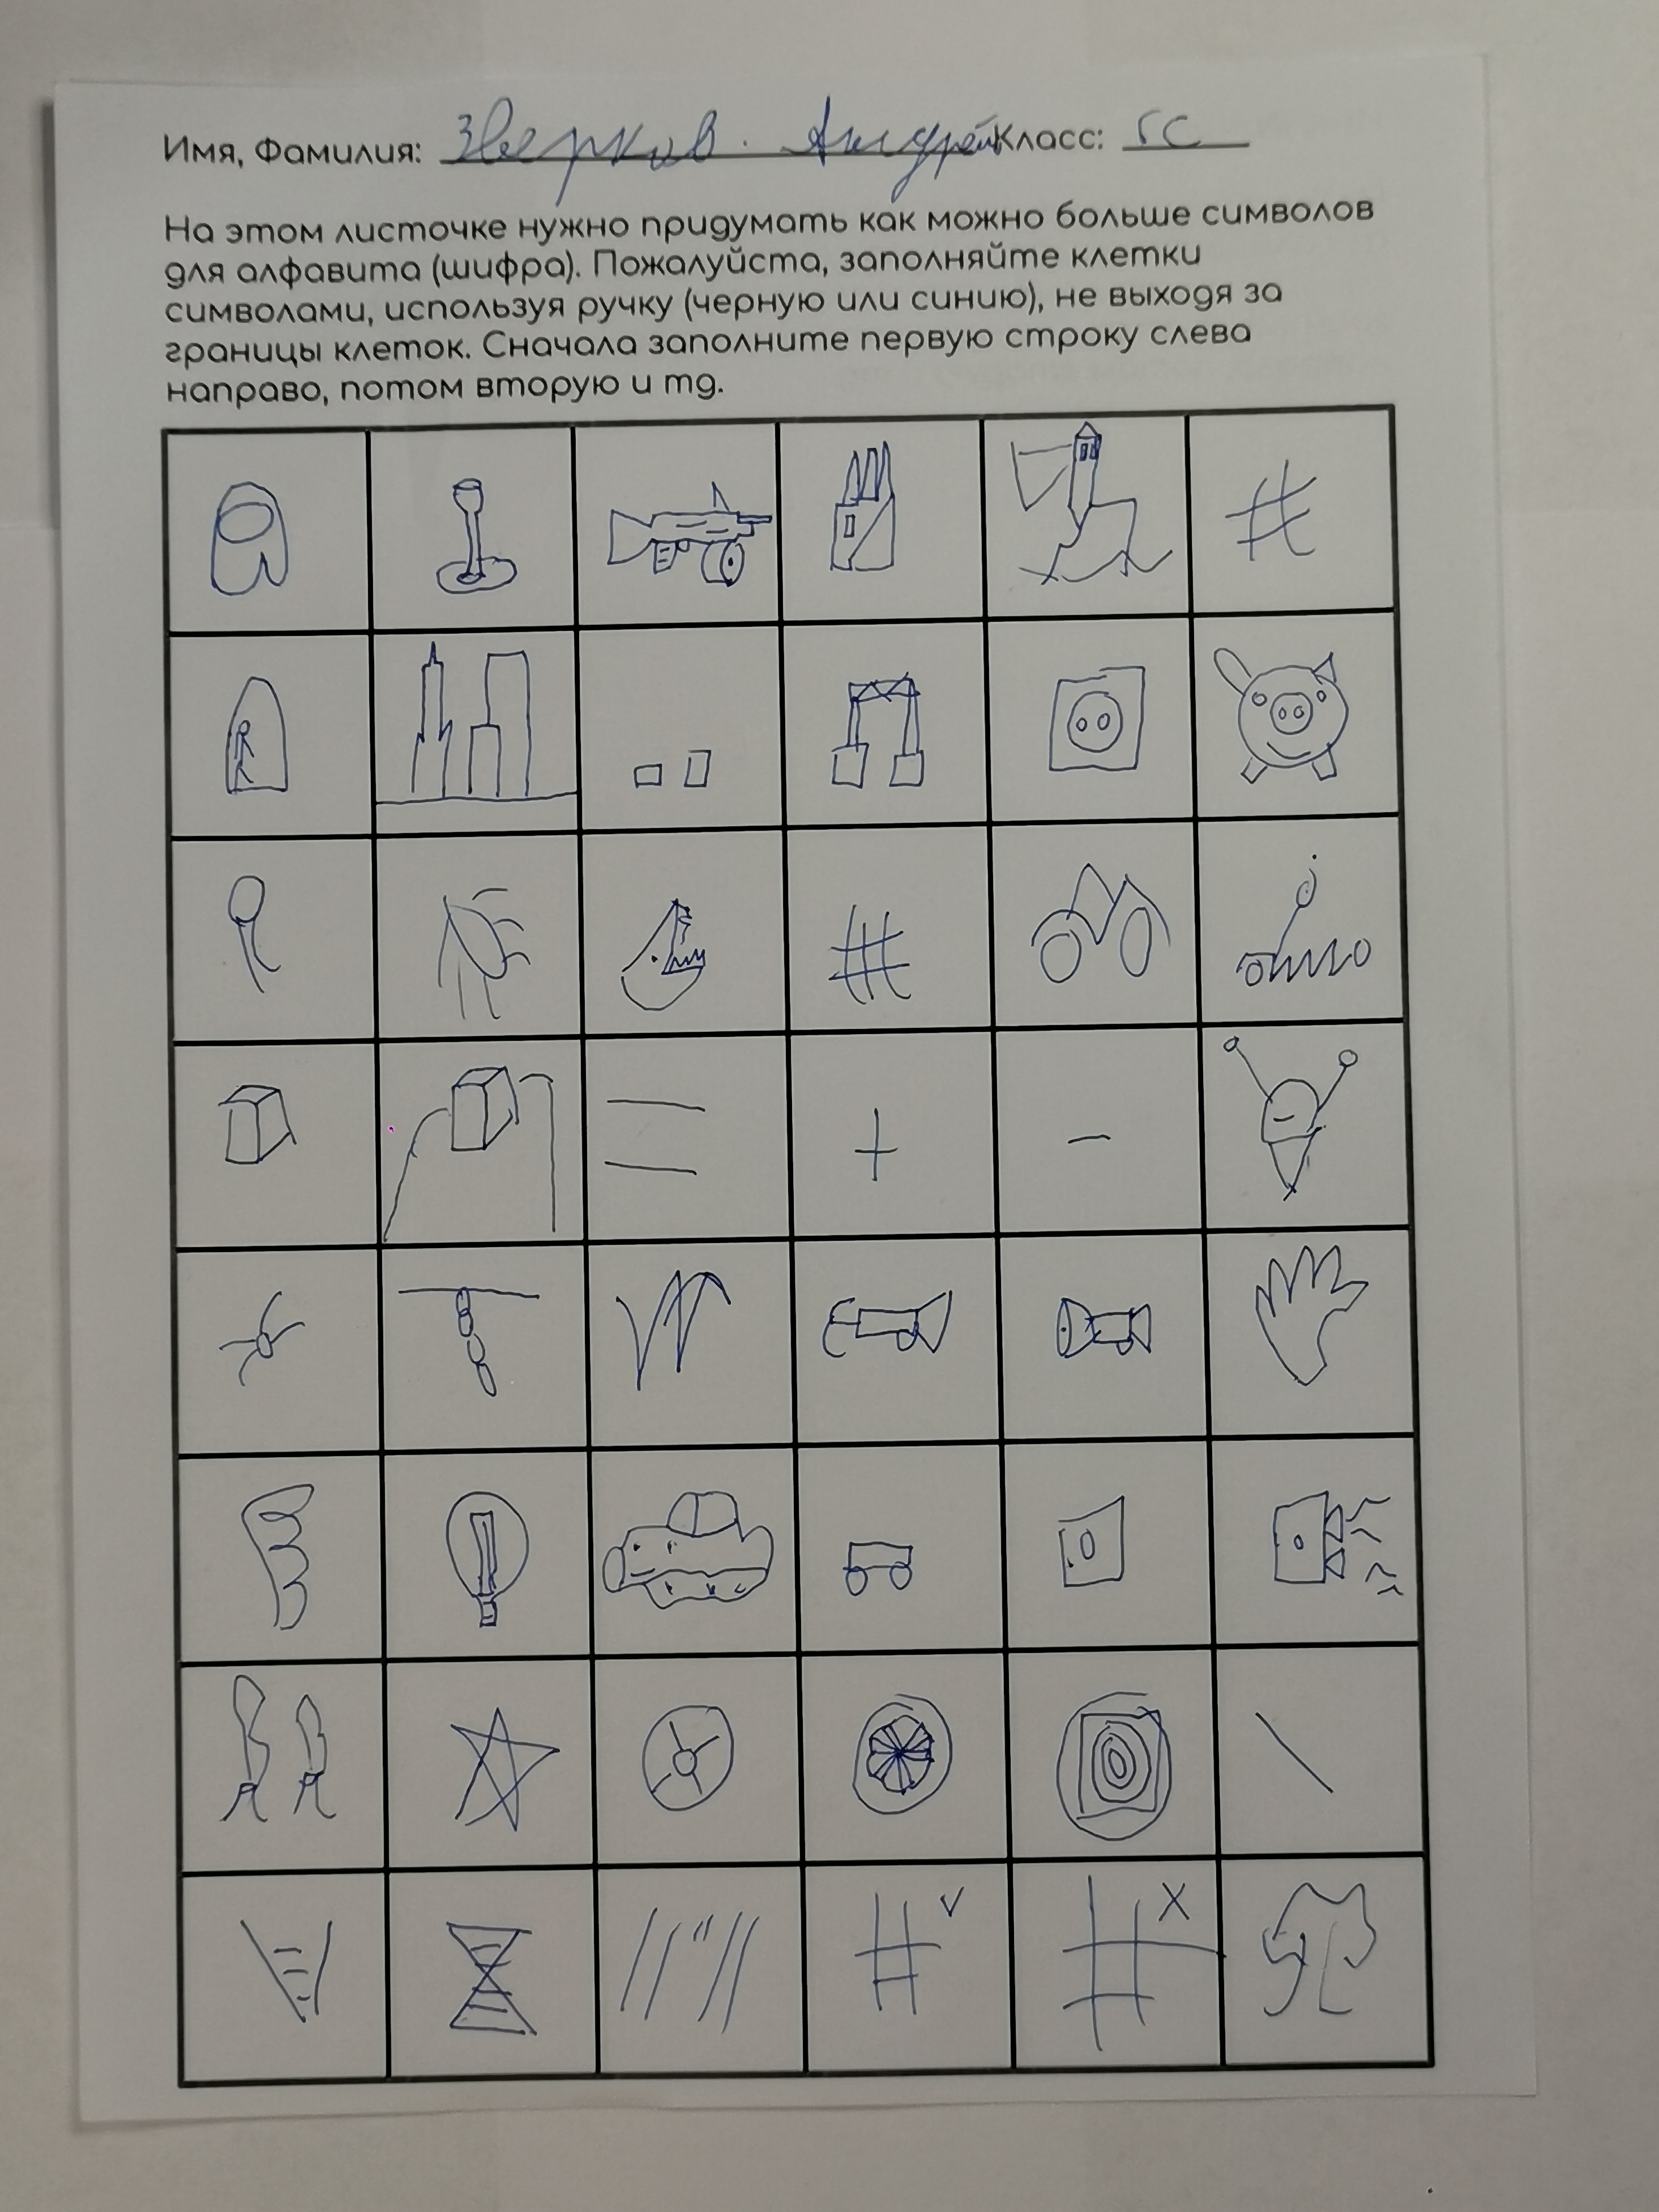 Имя, Фамилия: Зверков. Андрей Класс: 5С
На этом листочке нужно придумать как можно больше символов
для алфавита (шифра). Пожалуйста, заполняйте клетки
символами, используя ручку (черную или синию), не выходя за
границы клеток. Сначала заполните первую строку слева
направо, потом вторую и тд.